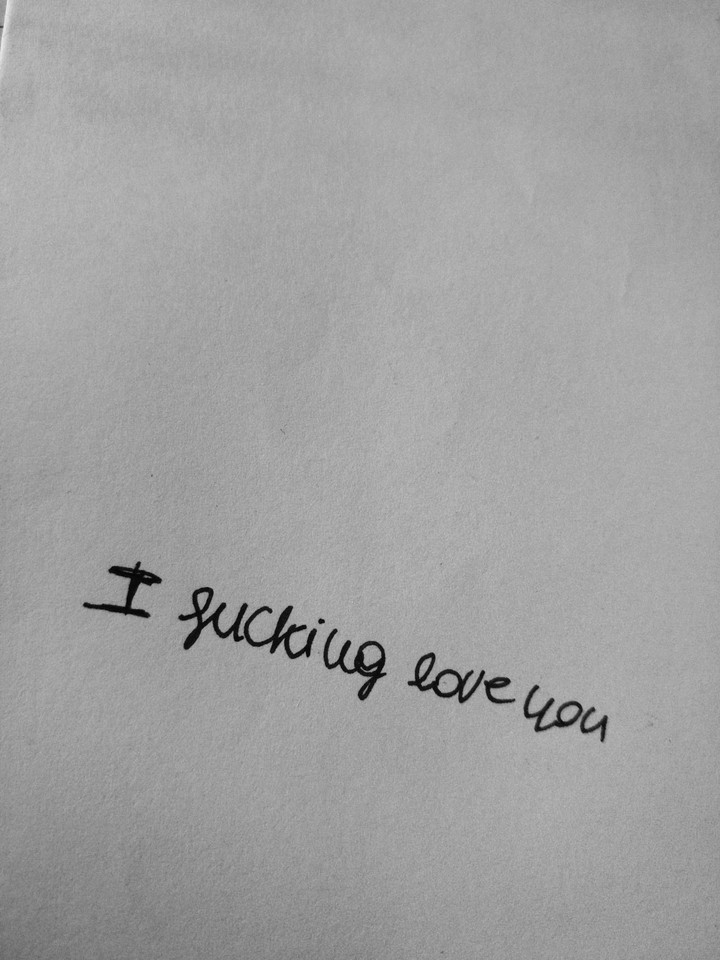 I fucking love you